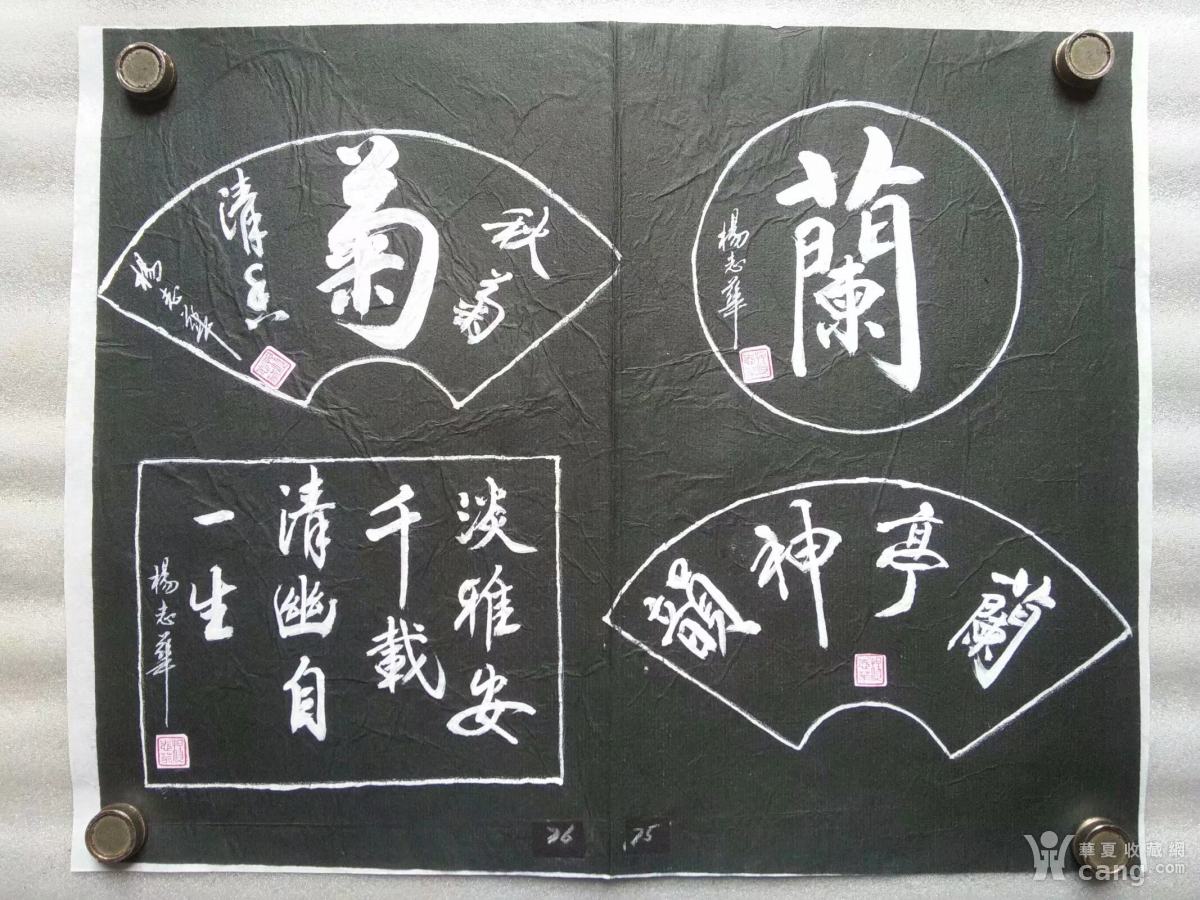 蘭
楊志華
蘭亭神韻
75
秋菊
菊
清香
楊志華
淡雅安
千載
清幽自
一生
楊志華
76
華夏收藏網
cang